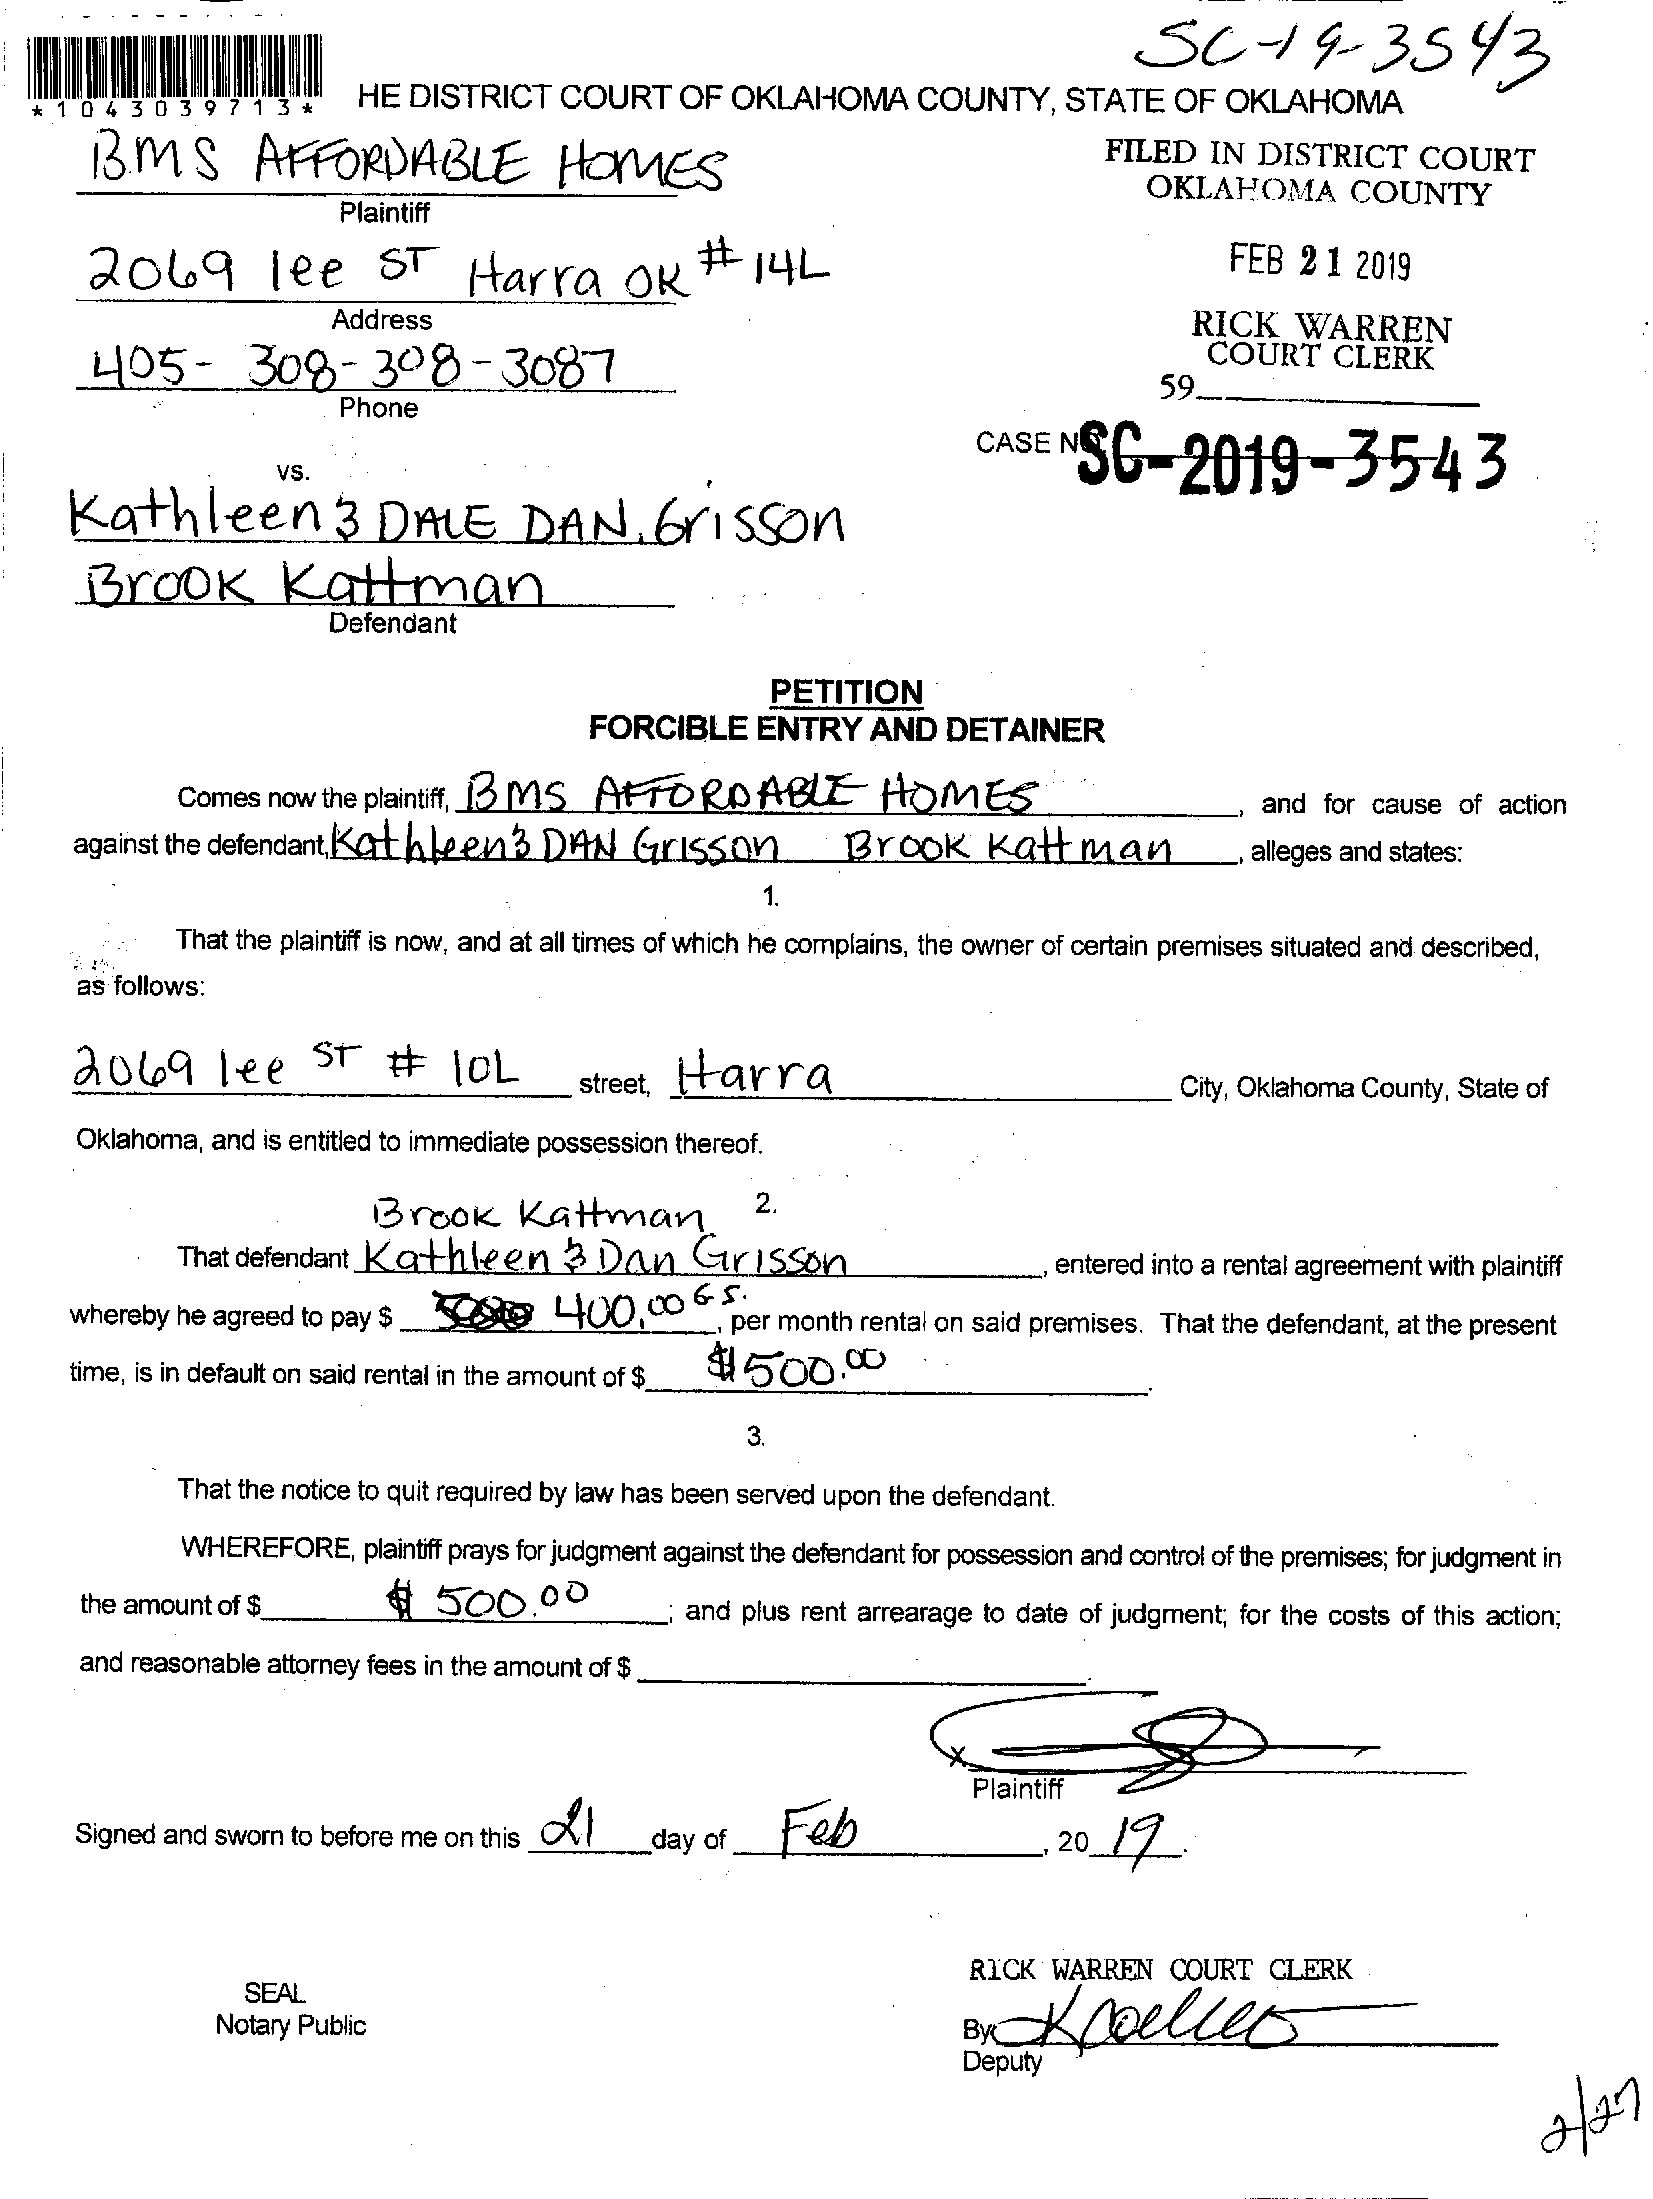 SC-19-3543
*1043039713*
HE DISTRICT COURT OF OKLAHOMA COUNTY, STATE OF OKLAHOMA
BMS AFFORDABLE HOMES
Plaintiff
FILED IN DISTRICT COURT
OKLAHOMA COUNTY
2069 lee ST Harra OK #14L
Address
FEB 21 2019
405-308-308-3087
Phone
RICK WARREN
COURT CLERK
59
CASE NO
SC-2019-3543
vs.
Kathleen & DALE DAN. Grisson
Brook Kattman
Defendant
PETITION
FORCIBLE ENTRY AND DETAINER
Comes now the plaintiff, BMS AFFORDABLE HOMES, and for cause of action
against the defendant, Kathleen & DAN Grisson Brook Kattman, alleges and states:
1.
That the plaintiff is now, and at all times of which he complains, the owner of certain premises situated and described,
as follows:
2069 lee ST # 10L street, Harra City, Oklahoma County, State of
Oklahoma, and is entitled to immediate possession thereof.
2.
Brook Kattman
That defendant Kathleen & Dan Grisson, entered into a rental agreement with plaintiff
whereby he agreed to pay $ 400.00 G S., per month rental on said premises. That the defendant, at the present
time, is in default on said rental in the amount of $ $500.00.
3.
That the notice to quit required by law has been served upon the defendant.
WHEREFORE, plaintiff prays for judgment against the defendant for possession and control of the premises; for judgment in
the amount of $ $ 500.00; and plus rent arrearage to date of judgment; for the costs of this action;
and reasonable attorney fees in the amount of $
x
Plaintiff
Signed and sworn to before me on this 21 day of Feb, 20 19.
RICK WARREN COURT CLERK
SEAL
Notary Public
By
Deputy
2/27